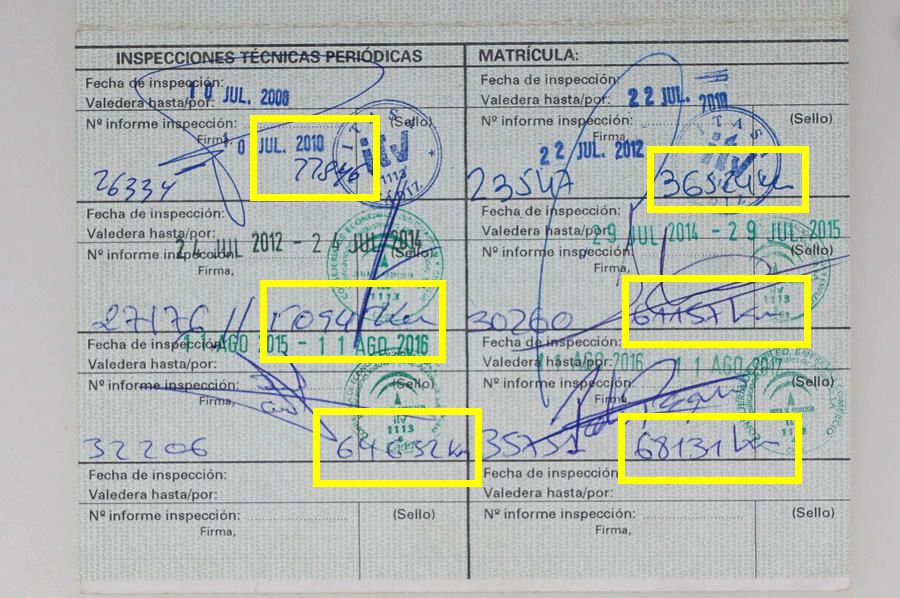 INSPECCIONES TÉCNICAS PERIÓDICAS
Fecha de inspección:
10 JUL. 2008
Valedera hasta/por:
Nº informe inspección:
Firma,
10 JUL. 2010
ITV
1113
26334
Fecha de inspección:
Valedera hasta/por:
24 JUL 2012 - 24 JUL 2014
Nº informe inspección:
(Sello)
Firma,
1113
27176
Fecha de inspección:
11 AGO 2015 - 11 AGO 2016
Valedera hasta/por:
Nº informe inspección:
(Sello)
Firma,
ITV
1113
32206
64632 km
Fecha de inspección:
Valedera hasta/por:
Nº informe inspección:
(Sello)
Firma,
MATRÍCULA:
Fecha de inspección:
22 JUL. 2010
Valedera hasta/por:
Nº informe inspección:
(Sello)
Firma,
22 JUL. 2012
23547
36524 km
Fecha de inspección:
Valedera hasta/por:
29 JUL 2014 - 29 JUL 2015
Nº informe inspección:
(Sello)
Firma,
1113
30260
61157 km
Fecha de inspección:
Valedera hasta/por:
11 AGO 2016 11 AGO 2017
Nº informe inspección:
(Sello)
Firma,
35751
68131 km
Fecha de inspección:
Valedera hasta/por:
Nº informe inspección:
(Sello)
Firma,